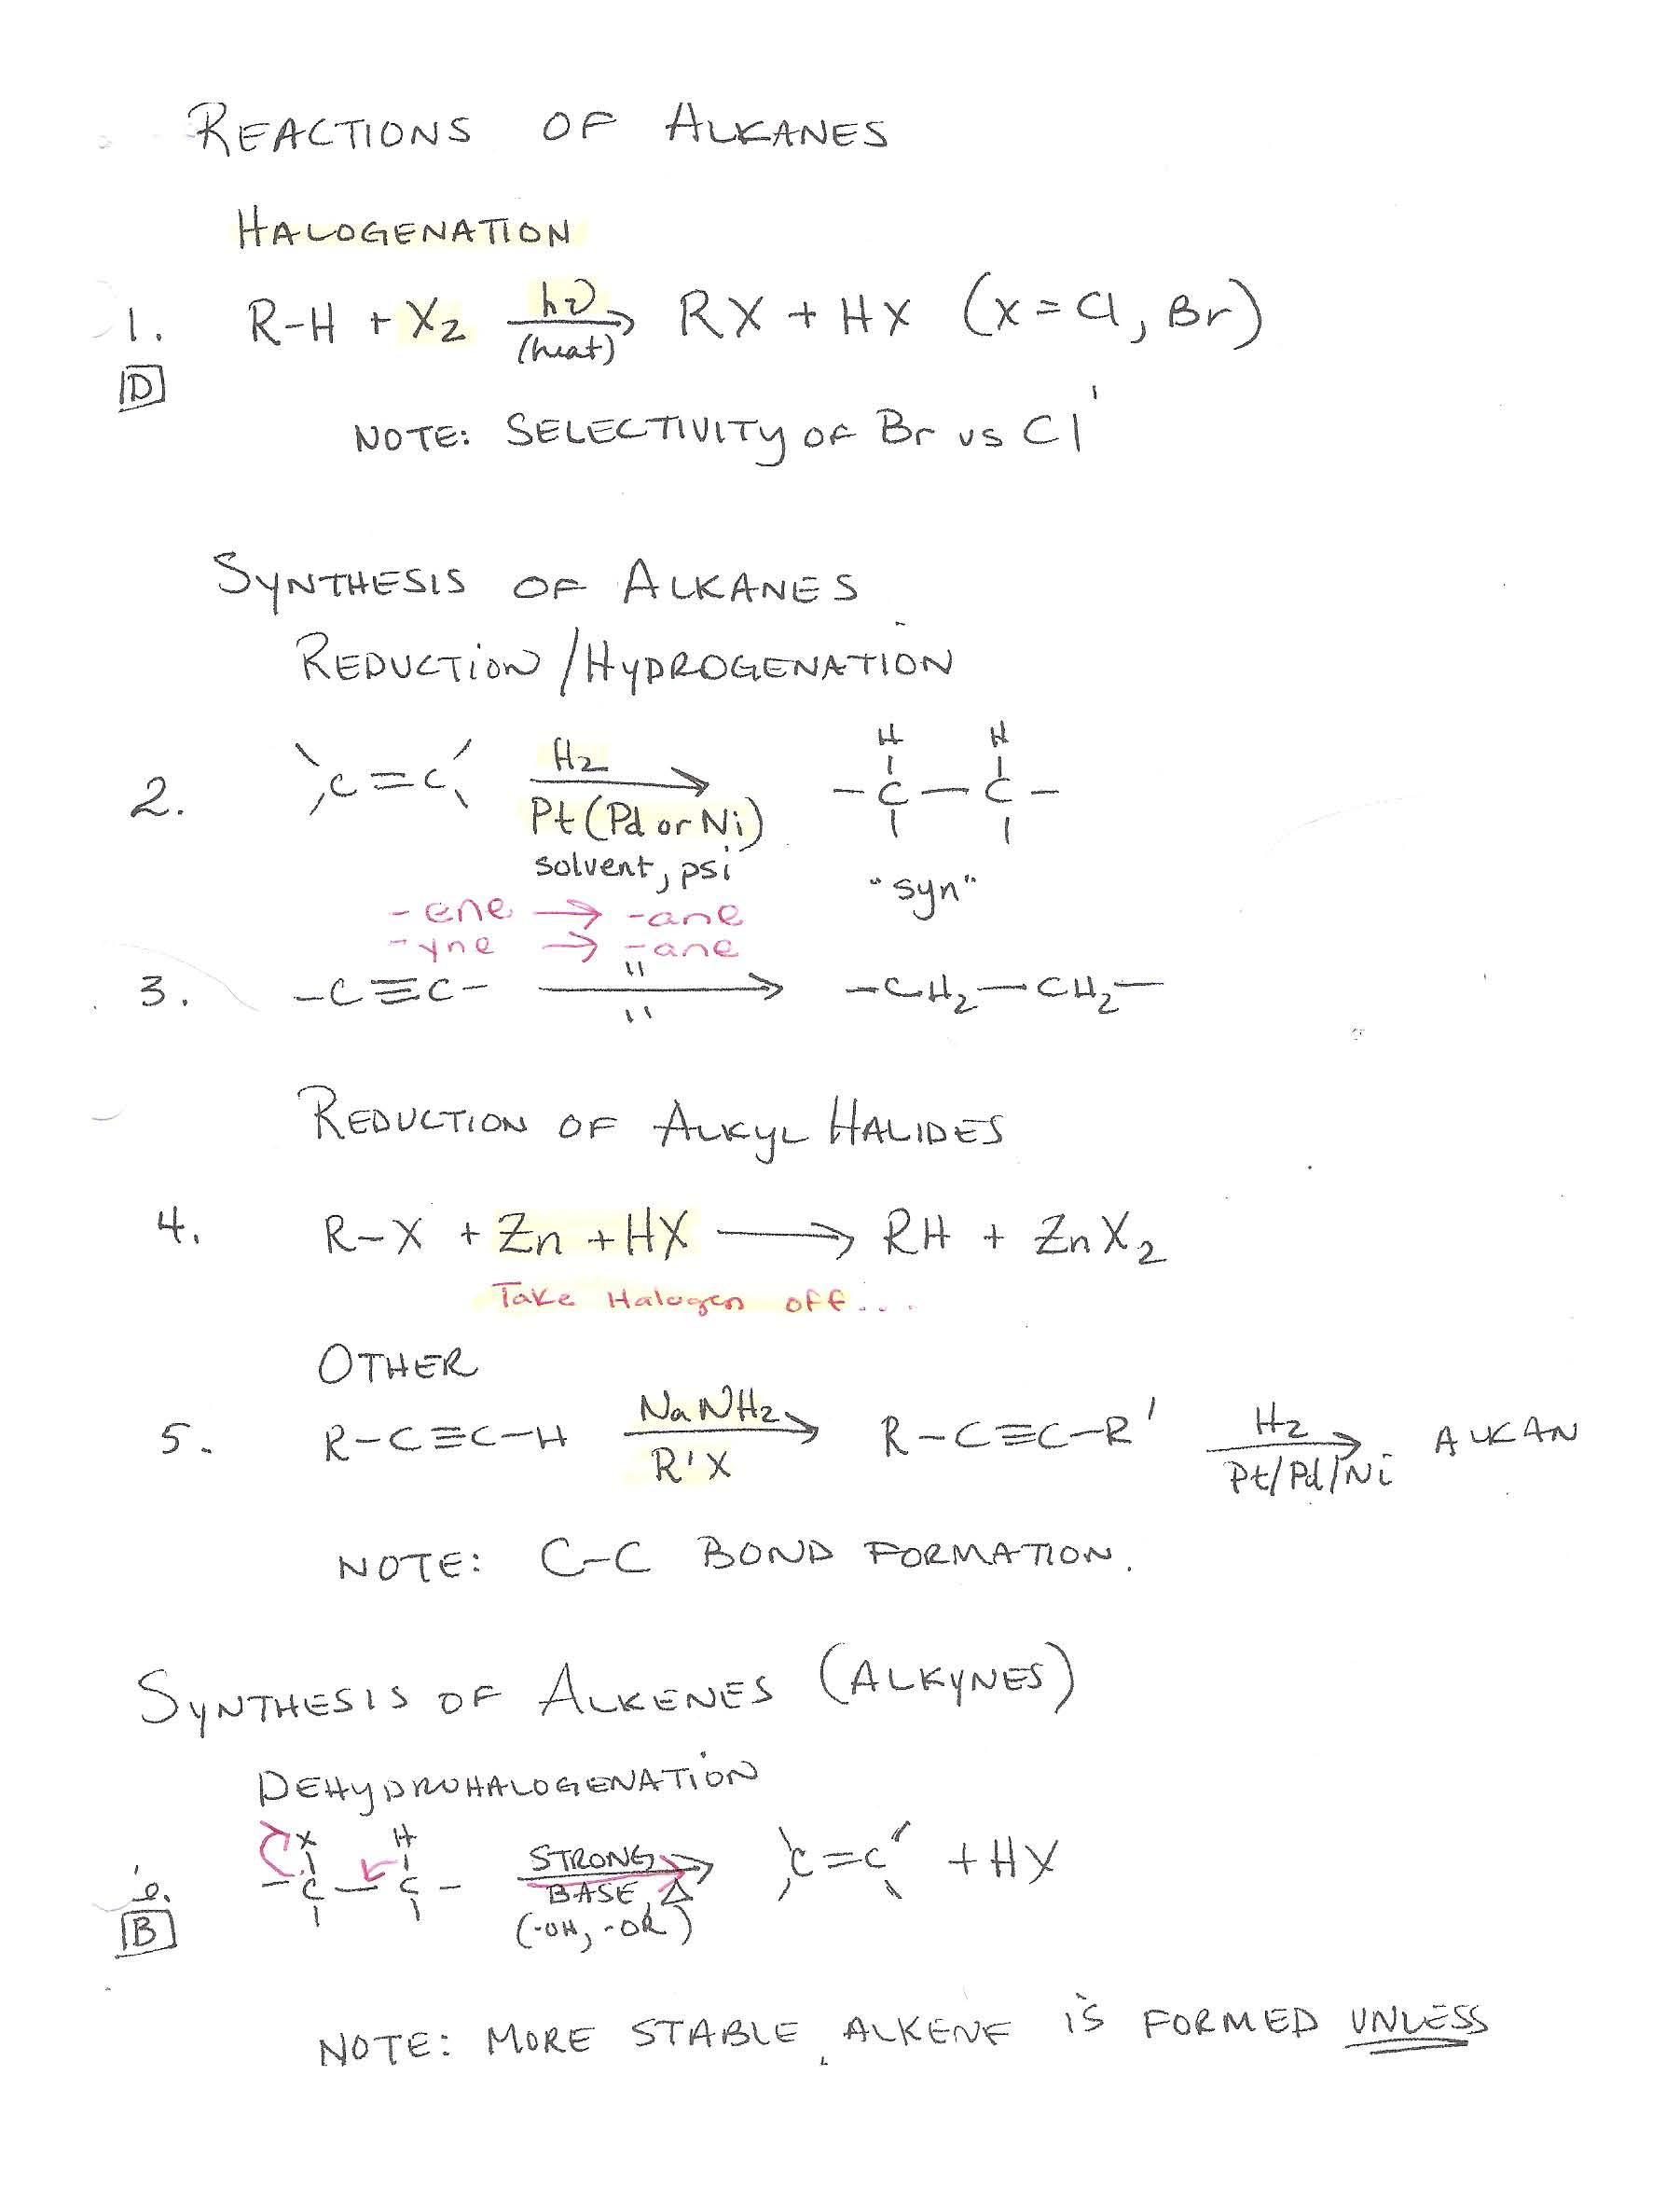 REACTIONS OF ALKANES
HALOGENATION
1. R-H + X2 hν (heat) → RX + HX (X = Cl, Br)
D
NOTE: SELECTIVITY OF Br vs Cl
SYNTHESIS OF ALKANES
REDUCTION / HYDROGENATION
H H
2. C=C H2 → -C-C-
Pt (Pd or Ni)
solvent, psi
"syn"
-ene → -ane
-yne → -ane
3. -C≡C- " → " -CH2-CH2-
REDUCTION OF ALKYL HALIDES
4. R-X + Zn + HX → RH + ZnX2
Take Halogen off...
OTHER
5. R-C≡C-H NaNH2 → R'X R-C≡C-R' H2 → Pt/Pd/Ni ALKAN
NOTE: C-C BOND FORMATION.
SYNTHESIS OF ALKENES (ALKYNES)
DEHYDROHALOGENATION
X H
-C-C- STRONG → C=C + HX
BASE, Δ
B
(-OH, -OR)
NOTE: MORE STABLE ALKENE IS FORMED UNLESS